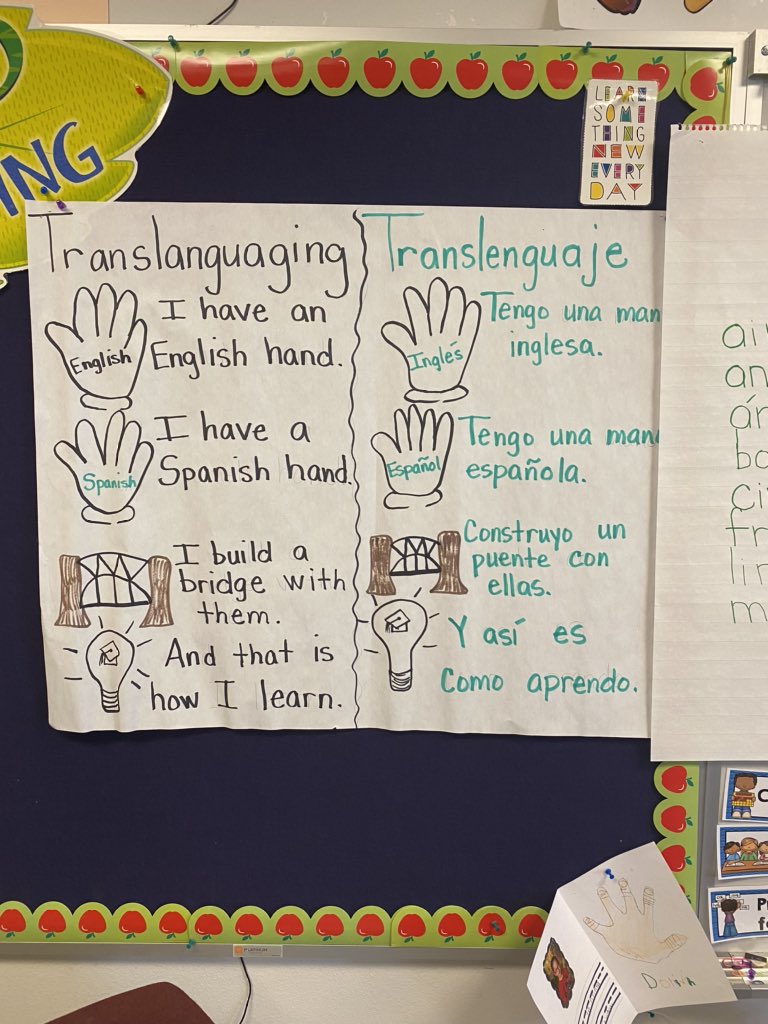 ING
LEARN
SOME
THING
NEW
EVERY
DAY
Translanguaging
English
I have an
English hand.
Spanish
I have a
Spanish hand.
I build a
bridge with
them.
And that is
how I learn.
Translenguaje
Inglés
Tengo una man
inglesa.
Español
Tengo una man
española.
Construyo un
puente con
ellas.
Y así es
como aprendo.